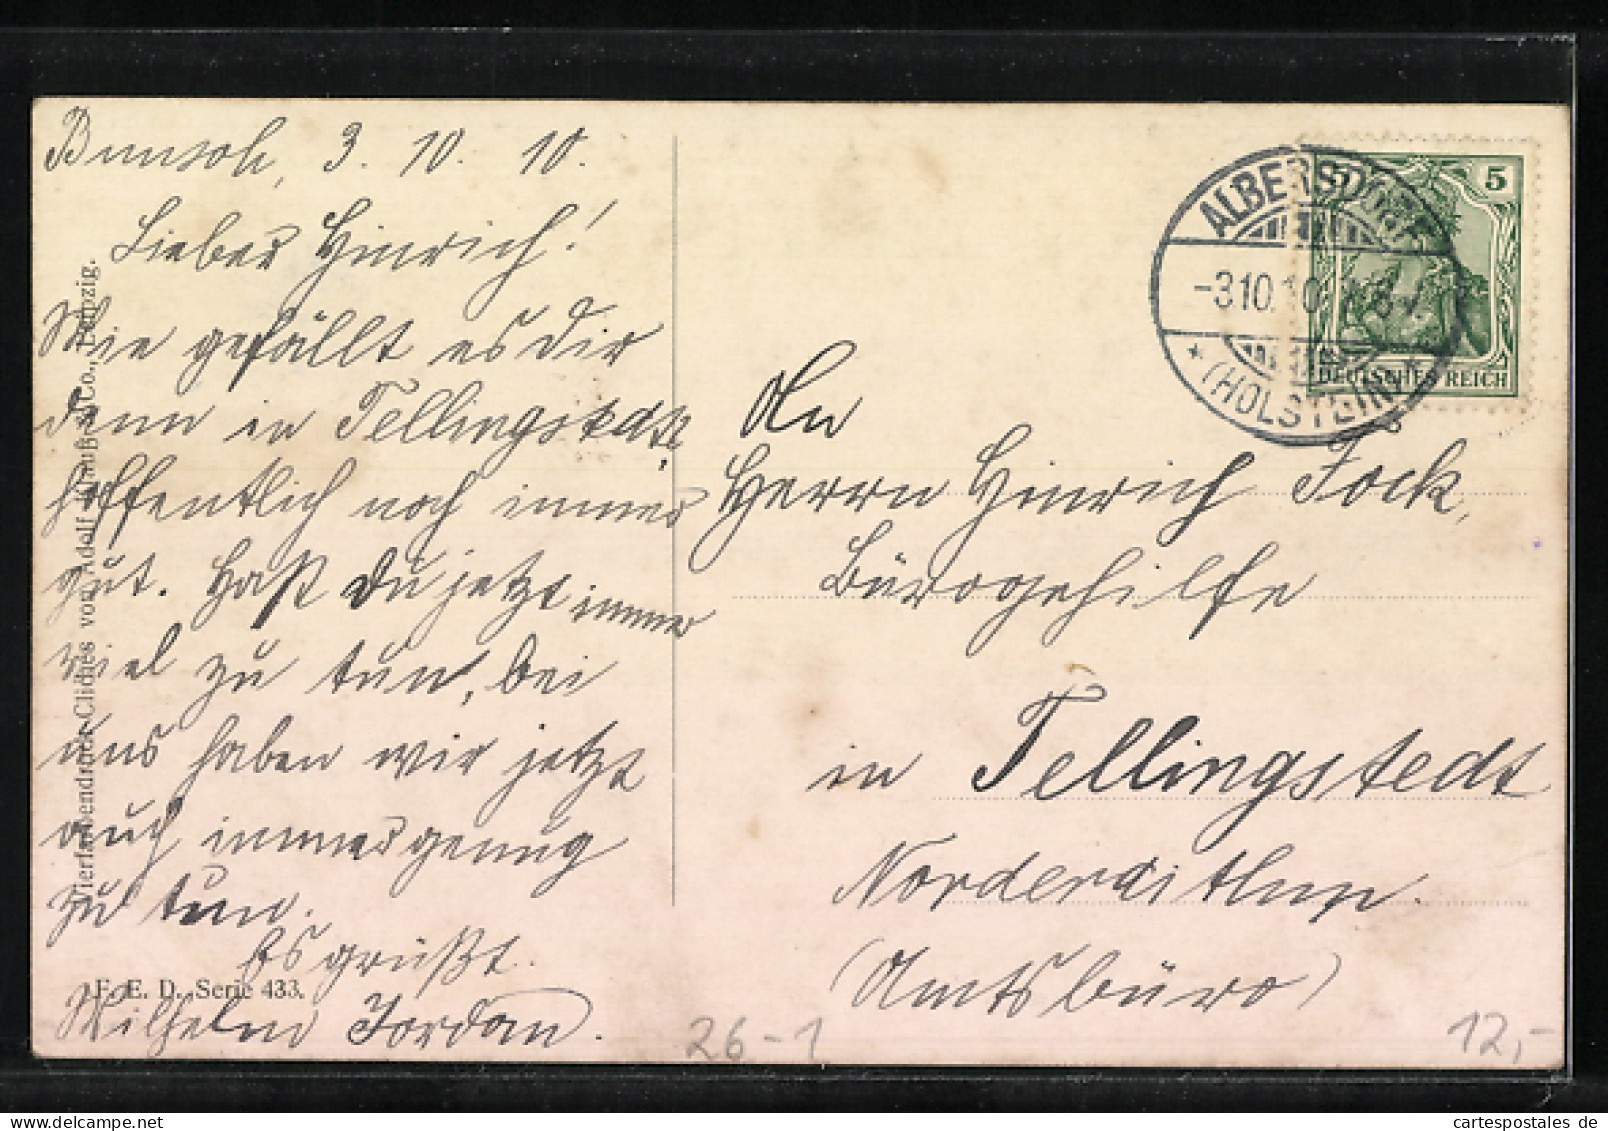 Bunsoh, 3. 10. 10.
Lieber Hinrich!
Wie gefällt es dir
denn in Tellingstedt,
hoffentlich noch immer
gut. Hast Du jetzt immer
viel zu tun, bei
uns haben wir jetzt
auch immer genug
zu tun.
Es grüßt.
Wilhelm Jordan.
Vierfarbendruck-Clichés von Adolf Klauß & Co., Leipzig.
F. E. D. Serie 433.
ALBERSDORF
-3.10.10.
* (HOLSTEIN) *
5 5
DEUTSCHES REICH
An
Herrn Hinrich Fock,
Bürogehilfe
in Tellingstedt
Norderdithm.
(Amtsbüro)
26-1
12,-
cartespostales de